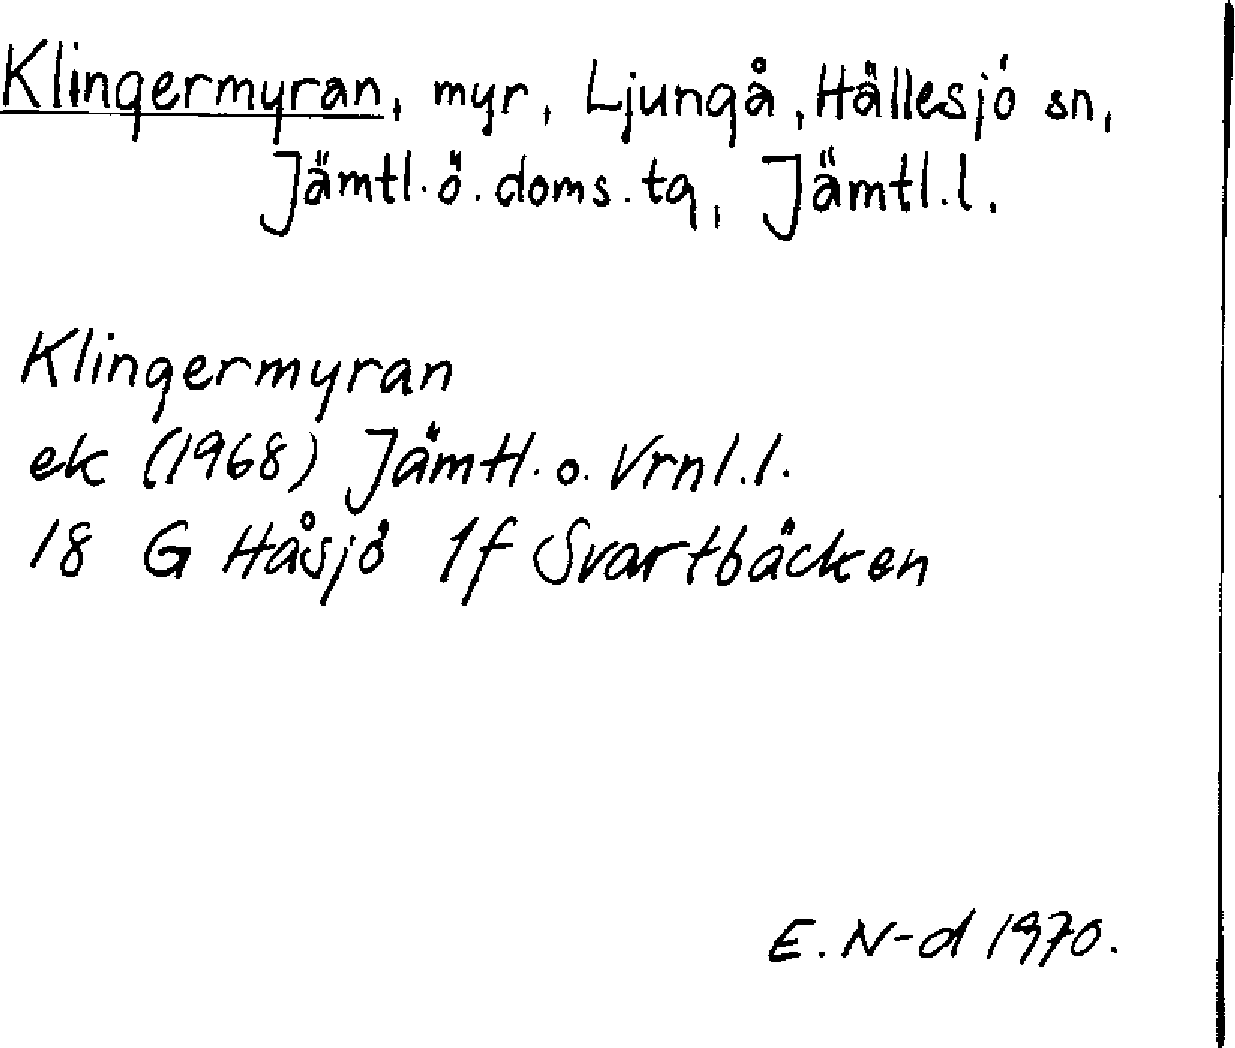 Klingermyran, myr, Ljungå, Hällesjö sn,
Jämtl. ö. doms. tg, Jämtl. l.
Klingermyran
ek (1968) Jämtl. o. Vrnl. l.
18 G Håsjö 1f Svartbäcken
E. N-d 1970.